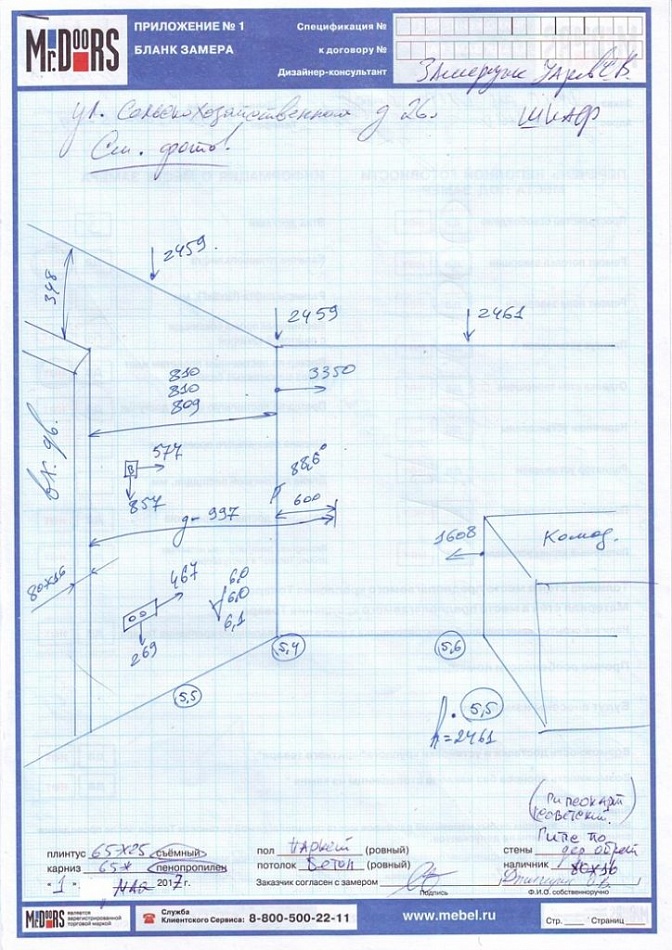 MR.DOORS
ПРИЛОЖЕНИЕ № 1
БЛАНК ЗАМЕРА
Спецификация №
к договору №
Дизайнер-консультант
ул. Сельскохозяйственная д 26.
Шкаф
См. фото!
348
2459.
2459
2461
810
810
809
3350
вх. дв.
577
857
88,6°
600
g-997
1608
Комод.
80x16
467
6,0
6,0
6,1
269
5,4
5,6
5,5
5,5
h=2461
(Гипсокарт
советский.)
Гипс по
плинтус 65x25 съёмный
пол паркет (ровный)
стены
карниз 65x пенопропилен
потолок Бетон (ровный)
наличник 80x16
"1" 2017 г.
Заказчик согласен с замером
Подпись
Ф.И.О. собственноручно
MR.DOORS
является зарегистрированной торговой маркой
Служба
Клиентского Сервиса: 8-800-500-22-11
www.mebel.ru
Стр. Страниц